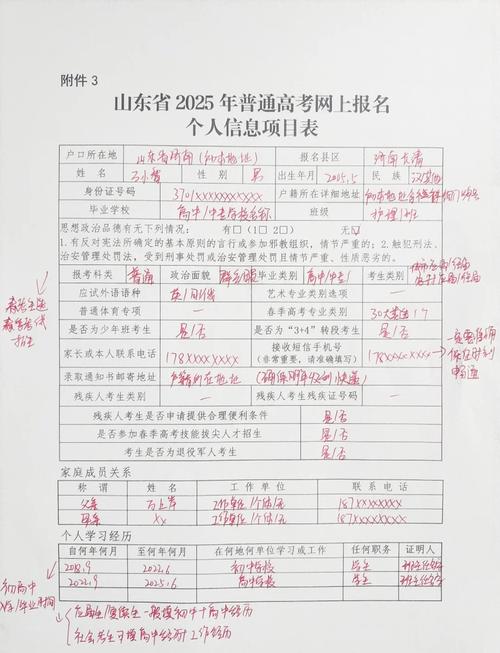 附件 3
山东省 2025 年普通高考网上报名
个人信息项目表
户口所在地 山东省济南(初本地址) 报名县区 济南长清
姓名 万小智 性别 男 出生年月 2015.5 民族 汉/其他
身份证号码 3701xxxxxxxxxx 户籍所在详细地址
毕业学校 高中/中专学校名称 班级 护理1班
思想政治品德有无下列情况: 有□(1□ 2□) 无□
1.有反对宪法所确定的基本原则的言行或参加邪教组织,情节严重的;2.触犯刑法、
治安管理处罚法,受到刑事处罚或治安管理处罚且情节严重、性质恶劣的。
报考科类 普通 政治面貌 群众/团员 毕业类别 高中/中专 考生类别
应试外语语种 英/日/俄 艺术专业类别选项 一
普通体育专项 一 春季高考专业类别 30大类选1个
是否为少年班考生 是/否 是否为“3+4”转段考生 是/否
家长或本人联系电话 178xxxxxxxx 接收短信手机号
(非常重要,请准确填写) 178xxxxxxxx
一定要准确
录取通知书邮寄地址 户籍所在地址
残疾人考生类别 残疾人考生残疾证号码
残疾人考生是否申请提供合理便利条件 是/否
是否参加春季高考技能拔尖人才招生 是/否
考生是否为退役军人考生 是/否
家庭成员关系
称谓 姓名 工作单位 联系电话
父亲 万上岸 工作单位/个体/无 187xxxxxxxx
母亲 xx 工作单位/个体/无 187xxxxxxxx
个人学习经历
自何年何月 至何年何月 在何地何单位学习或工作 任何职务 证明人
2018.9 2022.6 初中学校 学生 班主任姓名
2022.9 2025.6 高中学校 学生 班主任姓名
初高中
入学/毕业时间
应届生/复读生一般填初中+高中经历
社会考生可填高中经历+工作经历